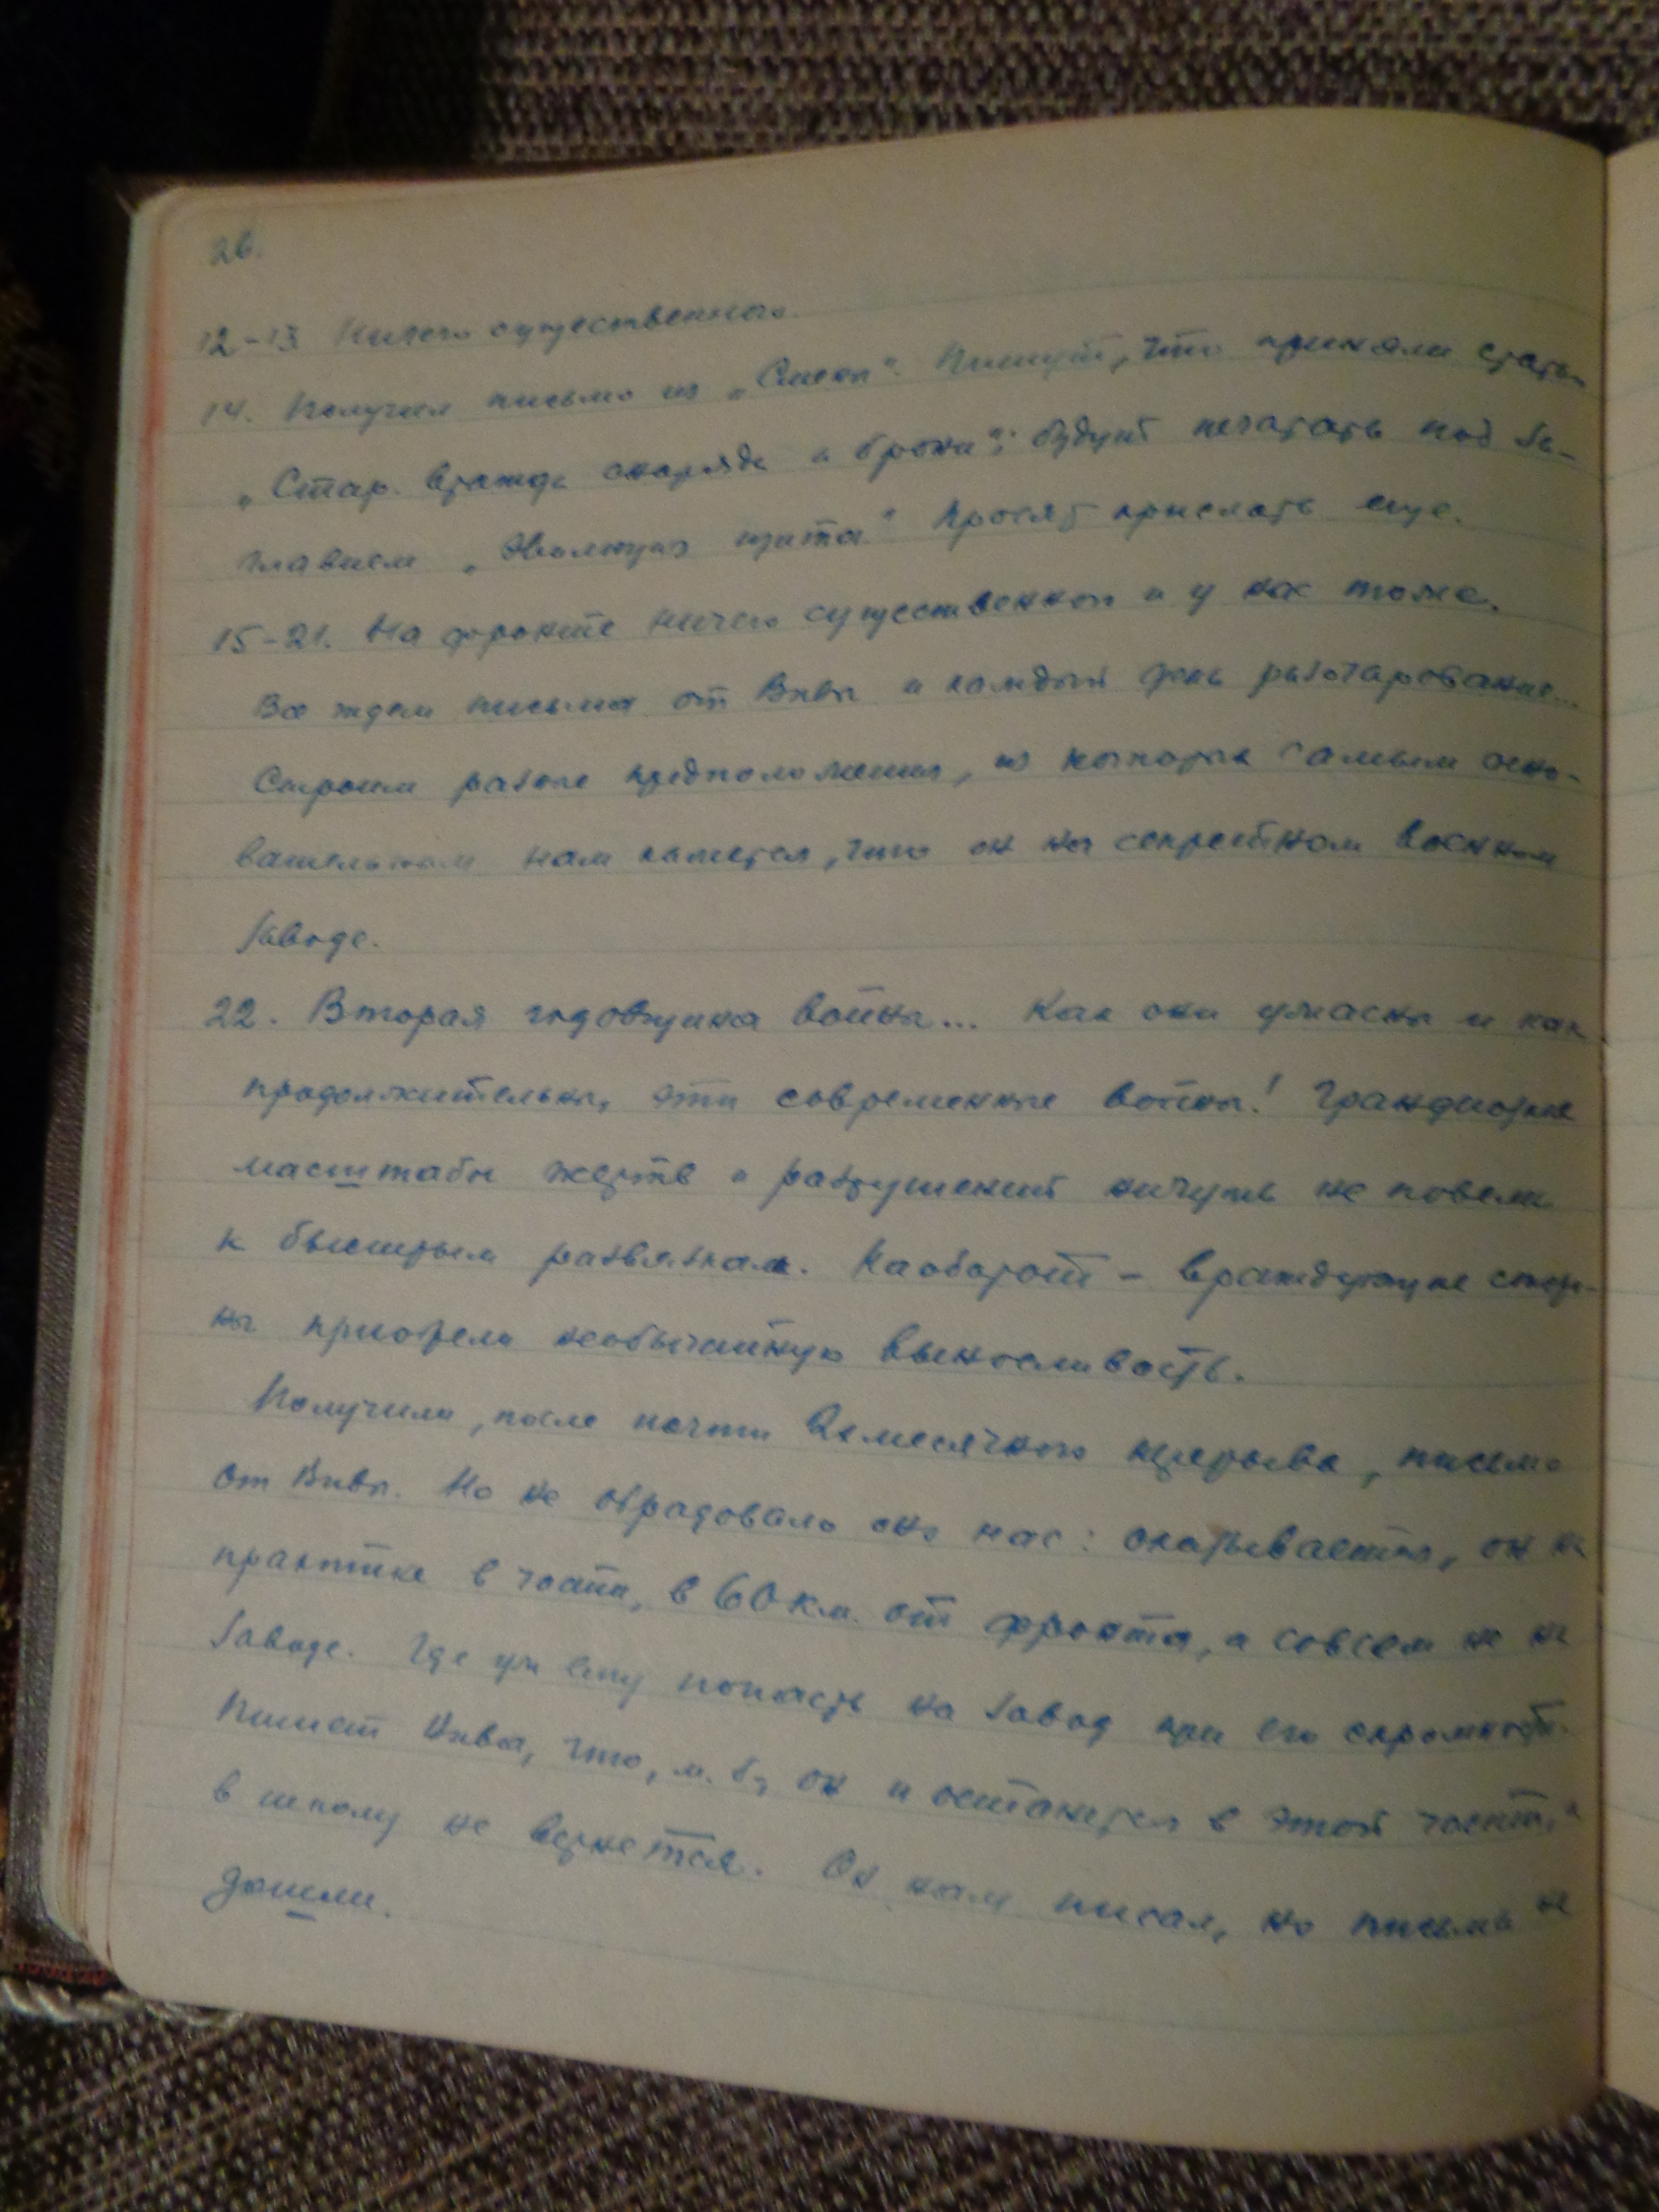 26.
12-13 Ничего существенного.
14. Получил письмо из „Смены". Пишут, что приняли статью
„Стар. вражда снаряда и брони"; будут печатать под за-
главием „Эволюция щита." Просят прислать еще.
15-21. На фронте ничего существенного и у нас тоже.
Все ждем письма от Вивы и каждый день разочарование...
Строим разные предположения, из которых самым осно-
вательным нам кажется, что он на секретном военном
заводе.
22. Вторая годовщина войны... Как они ужасны и как
продолжительны, эти современные войны! Грандиозные
масштабы жертв и разрушений ничуть не повели
к быстрым развязкам. Наоборот - враждующие сторо-
ны приобрели необычайную выносливость.
Получили, после почти 2хмесячного перерыва, письмо
от Вивы. Но не обрадовало оно нас: оказывается, он на
практике в части, в 60 км. от фронта, а совсем не на
заводе. Где уж ему попасть на завод при его скромности.
Пишет Вива, что, м. б., он и останется в этой части, и
в школу не вернется. Он нам писал, но письма не
дошли.